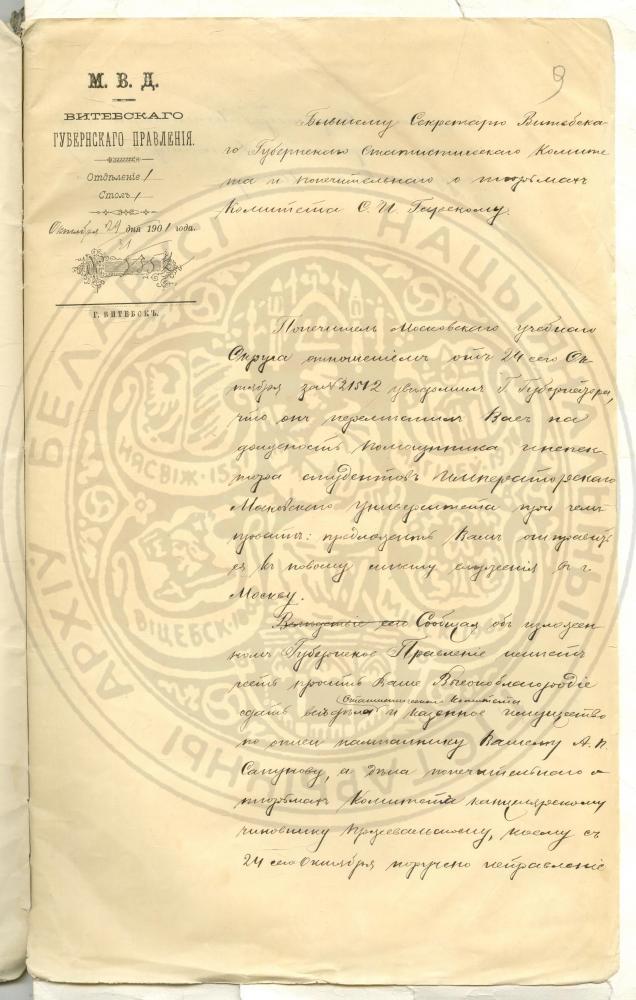 9
М. В. Д.
ВИТЕБСКАГО
ГУБЕРНСКАГО ПРАВЛЕНІЯ.
Отдѣленіе 1
Столъ 1
Октября 29 дня 1901 года.
31
№
Г. ВИТЕБСКЪ.
Бывшему Секретарю Витебска-
го Губернскаго Статистическаго Комите-
та и попечительнаго о тюрьмахъ
Комитета С. И.
Попечитель Московскаго учебнаго
Округа отношеніемъ отъ 24 сего Ок-
тября за № 21512 увѣдомилъ Г. Губернатора,
что онъ перемѣстилъ Васъ на
должность помощника инспек-
тора студентовъ Императорскаго
Московскаго Университета при чемъ
проситъ: предложить Вамъ отправить
ся къ новому мѣсту служенія въ г.
Москву.
Вслѣдствіе сего Сообщая объ изложен-
номъ Губернское Правленіе имѣетъ
честь просить Ваше Высокоблагородіе
Статистическаго Комитета
сдать всѣ дѣла и казенное имущество
по описи намѣстнику Вашему А. П.
Сапунову, а дѣла попечительнаго о
тюрьмахъ Комитета канцелярскому
чиновнику Пржевальскому, коему съ
24 сего Октября поручено исправленіе
АРХІЎ БЕЛАРУСІ
НАЦЫЯНАЛЬНЫ
ГІСТАРЫЧНЫ
НЯСВІЖ
ВІЦЕБСК